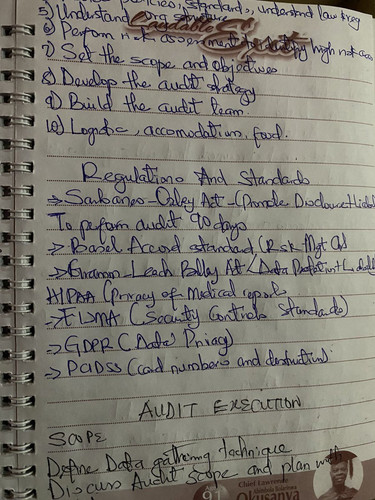 policies, standards, understand law & reg
5) Understand Org structure
6) Perform risk assessment identifying high risk areas
7) Set the scope and objectives
8) Develop the audit strategy
9) Build the audit team.
10) Logistic, accomodation, food.
Regulations And Standards
→ Sarbanes-Oxley Act - (Promote Disclosure
To perform audit 90 days
→ Basel Accord standard (Risk Mgt
→ Gramm Leach Bliley Act / Data Protection +
HIPAA (Privacy of Medical reports
→ FISMA (Security Controls Standards)
→ GDPR (Data Privacy)
→ PCIDSS (card numbers and destruction)
AUDIT EXECUTION
SCOPE
Define Data gathering technique
Discuss Audit scope and plan with
Chief Lawrence